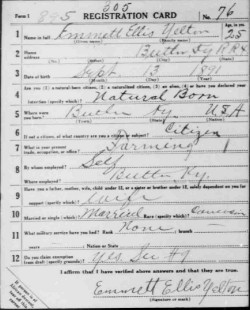 605
Form 1 895 REGISTRATION CARD No. 76
1 Name in full Emmett Ellis Yelton Age, in yrs. 25
2 Home address Butler Ky R.R.
3 Date of birth Sept. 13 1891
4 Are you (1) a natural-born citizen, (2) a naturalized citizen, (3) an alien, (4) or have you declared your intention (specify which)? Natural Born
5 Where were you born? Butler Ky. USA
6 If not a citizen, of what country are you a citizen or subject? Citizen
7 What is your present trade, occupation, or office? Farming
8 By whom employed? Self
Where employed? Butler, Ky.
9 Have you a father, mother, wife, child under 12, or a sister or brother under 12, solely dependent on you for support (specify which)? wife
10 Married or single (which)? Married Race (specify which)? Caucasian
11 What military service have you had? Rank None branch
years Nation or State
12 Do you claim exemption from draft (specify grounds)? Yes.
I affirm that I have verified above answers and that they are true.
Emmett Ellis Yelton
(Signature or mark)